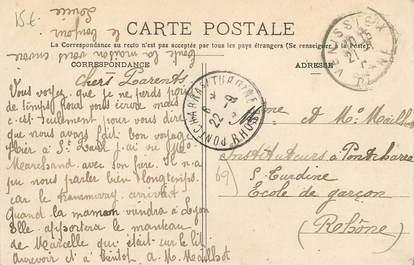 CARTE POSTALE
La Correspondance au recto n'est pas acceptée par tous les pays étrangers (Se renseigner à la poste).
CORRESPONDANCE
ADRESSE
Chers Parents
Vous voyez que je ne perds pas
de temps pour vous écrire mais c'
est seulement pour vous dire
que nous avons fait bon voyage
hier à St j'ai vu
Marchand avec son fère. Il n'a
pu nous parler bien longtemps
car le tramway arrivait
Quand la maman viendra à Lyon
Elle apportera le manteau
de Marcelle qui était sur le lit
Aurevoir et à bientôt à M. Maillot
15-7
le bonjour
toute la maison vous envoie
VENISSIEUX
RHONE
PONTCHARRA-S-TURDINE
RHONE
22
Mme et Mr Maillot
Instituteurs à Pontcharra
S Turdine
69)
Ecole de garçon
(Rhône)